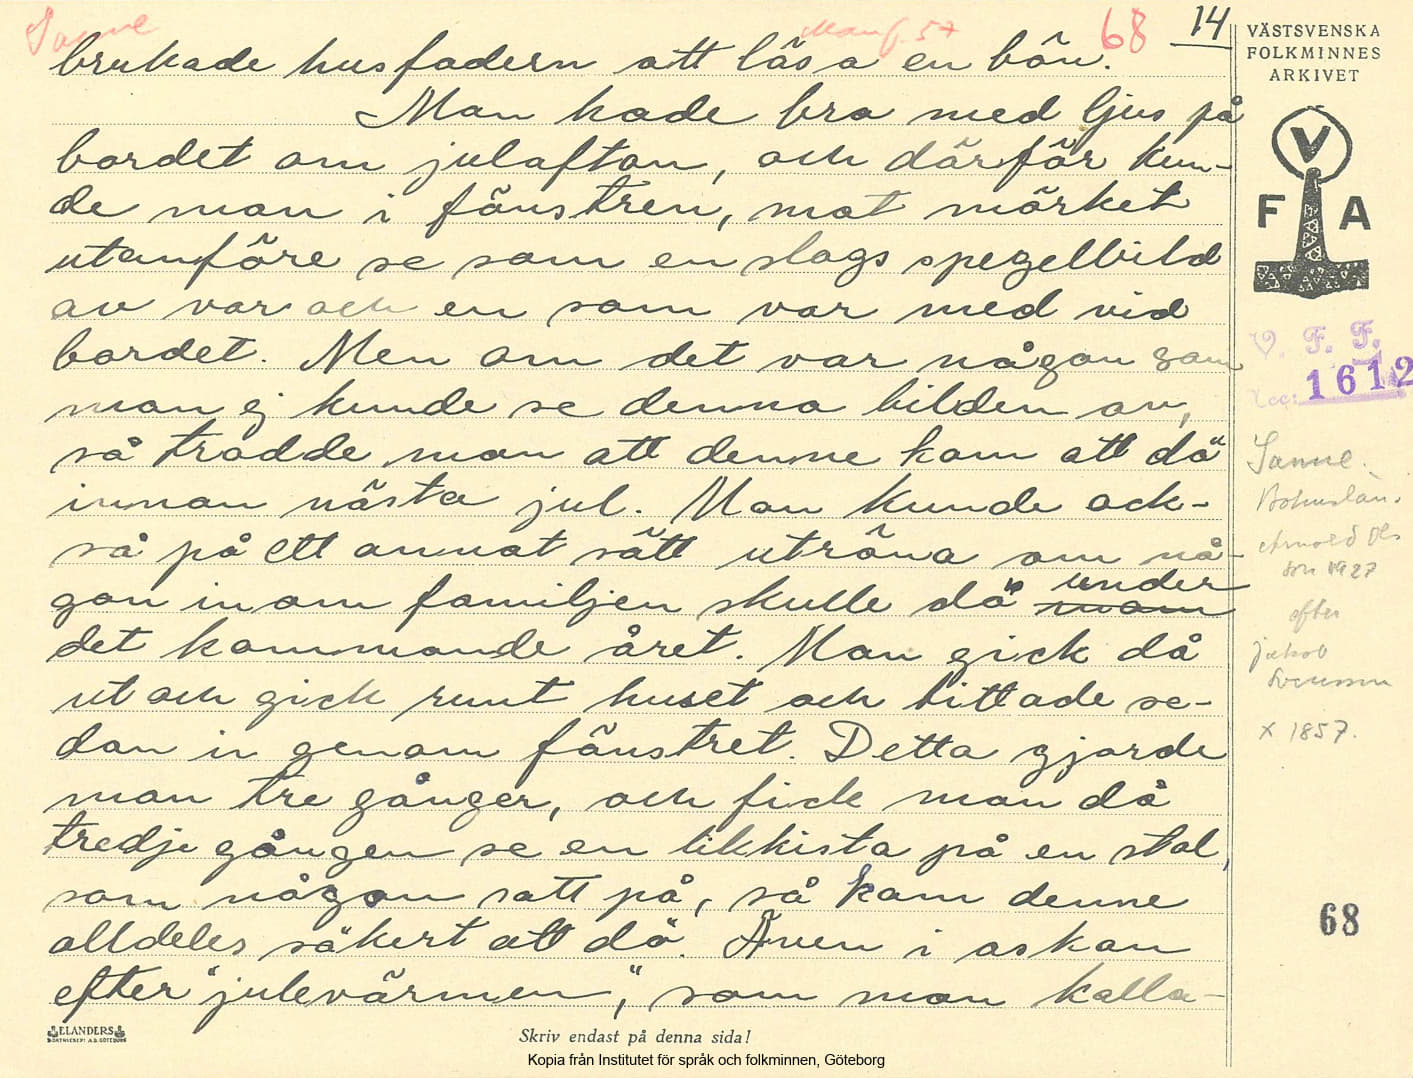 Sanne
68
14
brukade husfadern att läsa en bön.
Man hade bra med ljus på
bordet om julafton, och därför kun-
de man i fönstren, mot mörket
utanföre se som en slags spegelbild
av var och en som var med vid
bordet. Men om det var någon som
man ej kunde se denna bilden av,
så trodde man att denne kom att dö
innan nästa jul. Man kunde ock-
så på ett annat sätt utröna om nå-
gon inom familjen skulle dö under
det kommande året. Man gick då
ut och gick runt huset och tittade se-
dan in genom fönstret. Detta gjorde
man tre gånger, och fick man då
tredje gången se en likkista på en stol,
som någon satt på, så kom denne
alldeles säkert att dö. Även i askan
efter "julevärmen", som man kalla-
VÄSTSVENSKA
FOLKMINNES
ARKIVET
V
F A
V. F. F.
Acc: 1612
Sanne.
Bohuslän.
Arnold Ols
son 1927
efter
Jakob
Svensson
x 1857.
68
ELANDERS
Skriv endast på denna sida!
Kopia från Institutet för språk och folkminnen, Göteborg